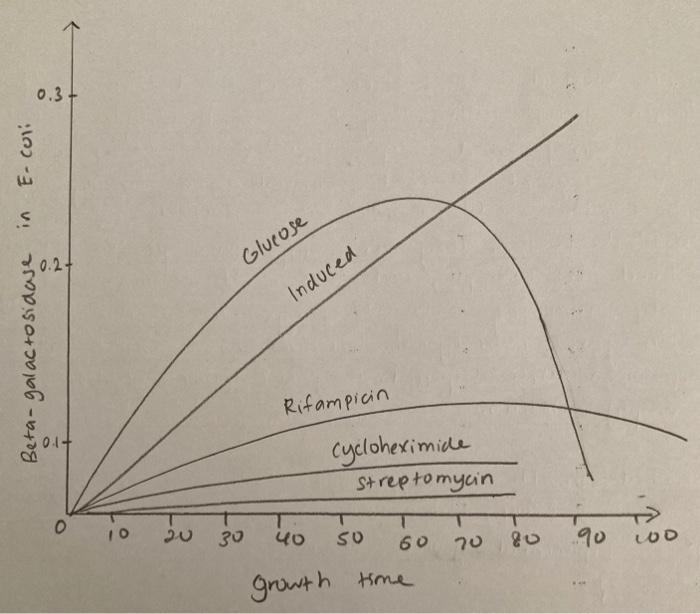 Beta-galactosidase in E-coli
0.3
0.2
0.1
Glucose
Induced
Rifampicin
Cycloheximide
Streptomycin
0 10 20 30 40 50 60 70 80 90 100
growth time